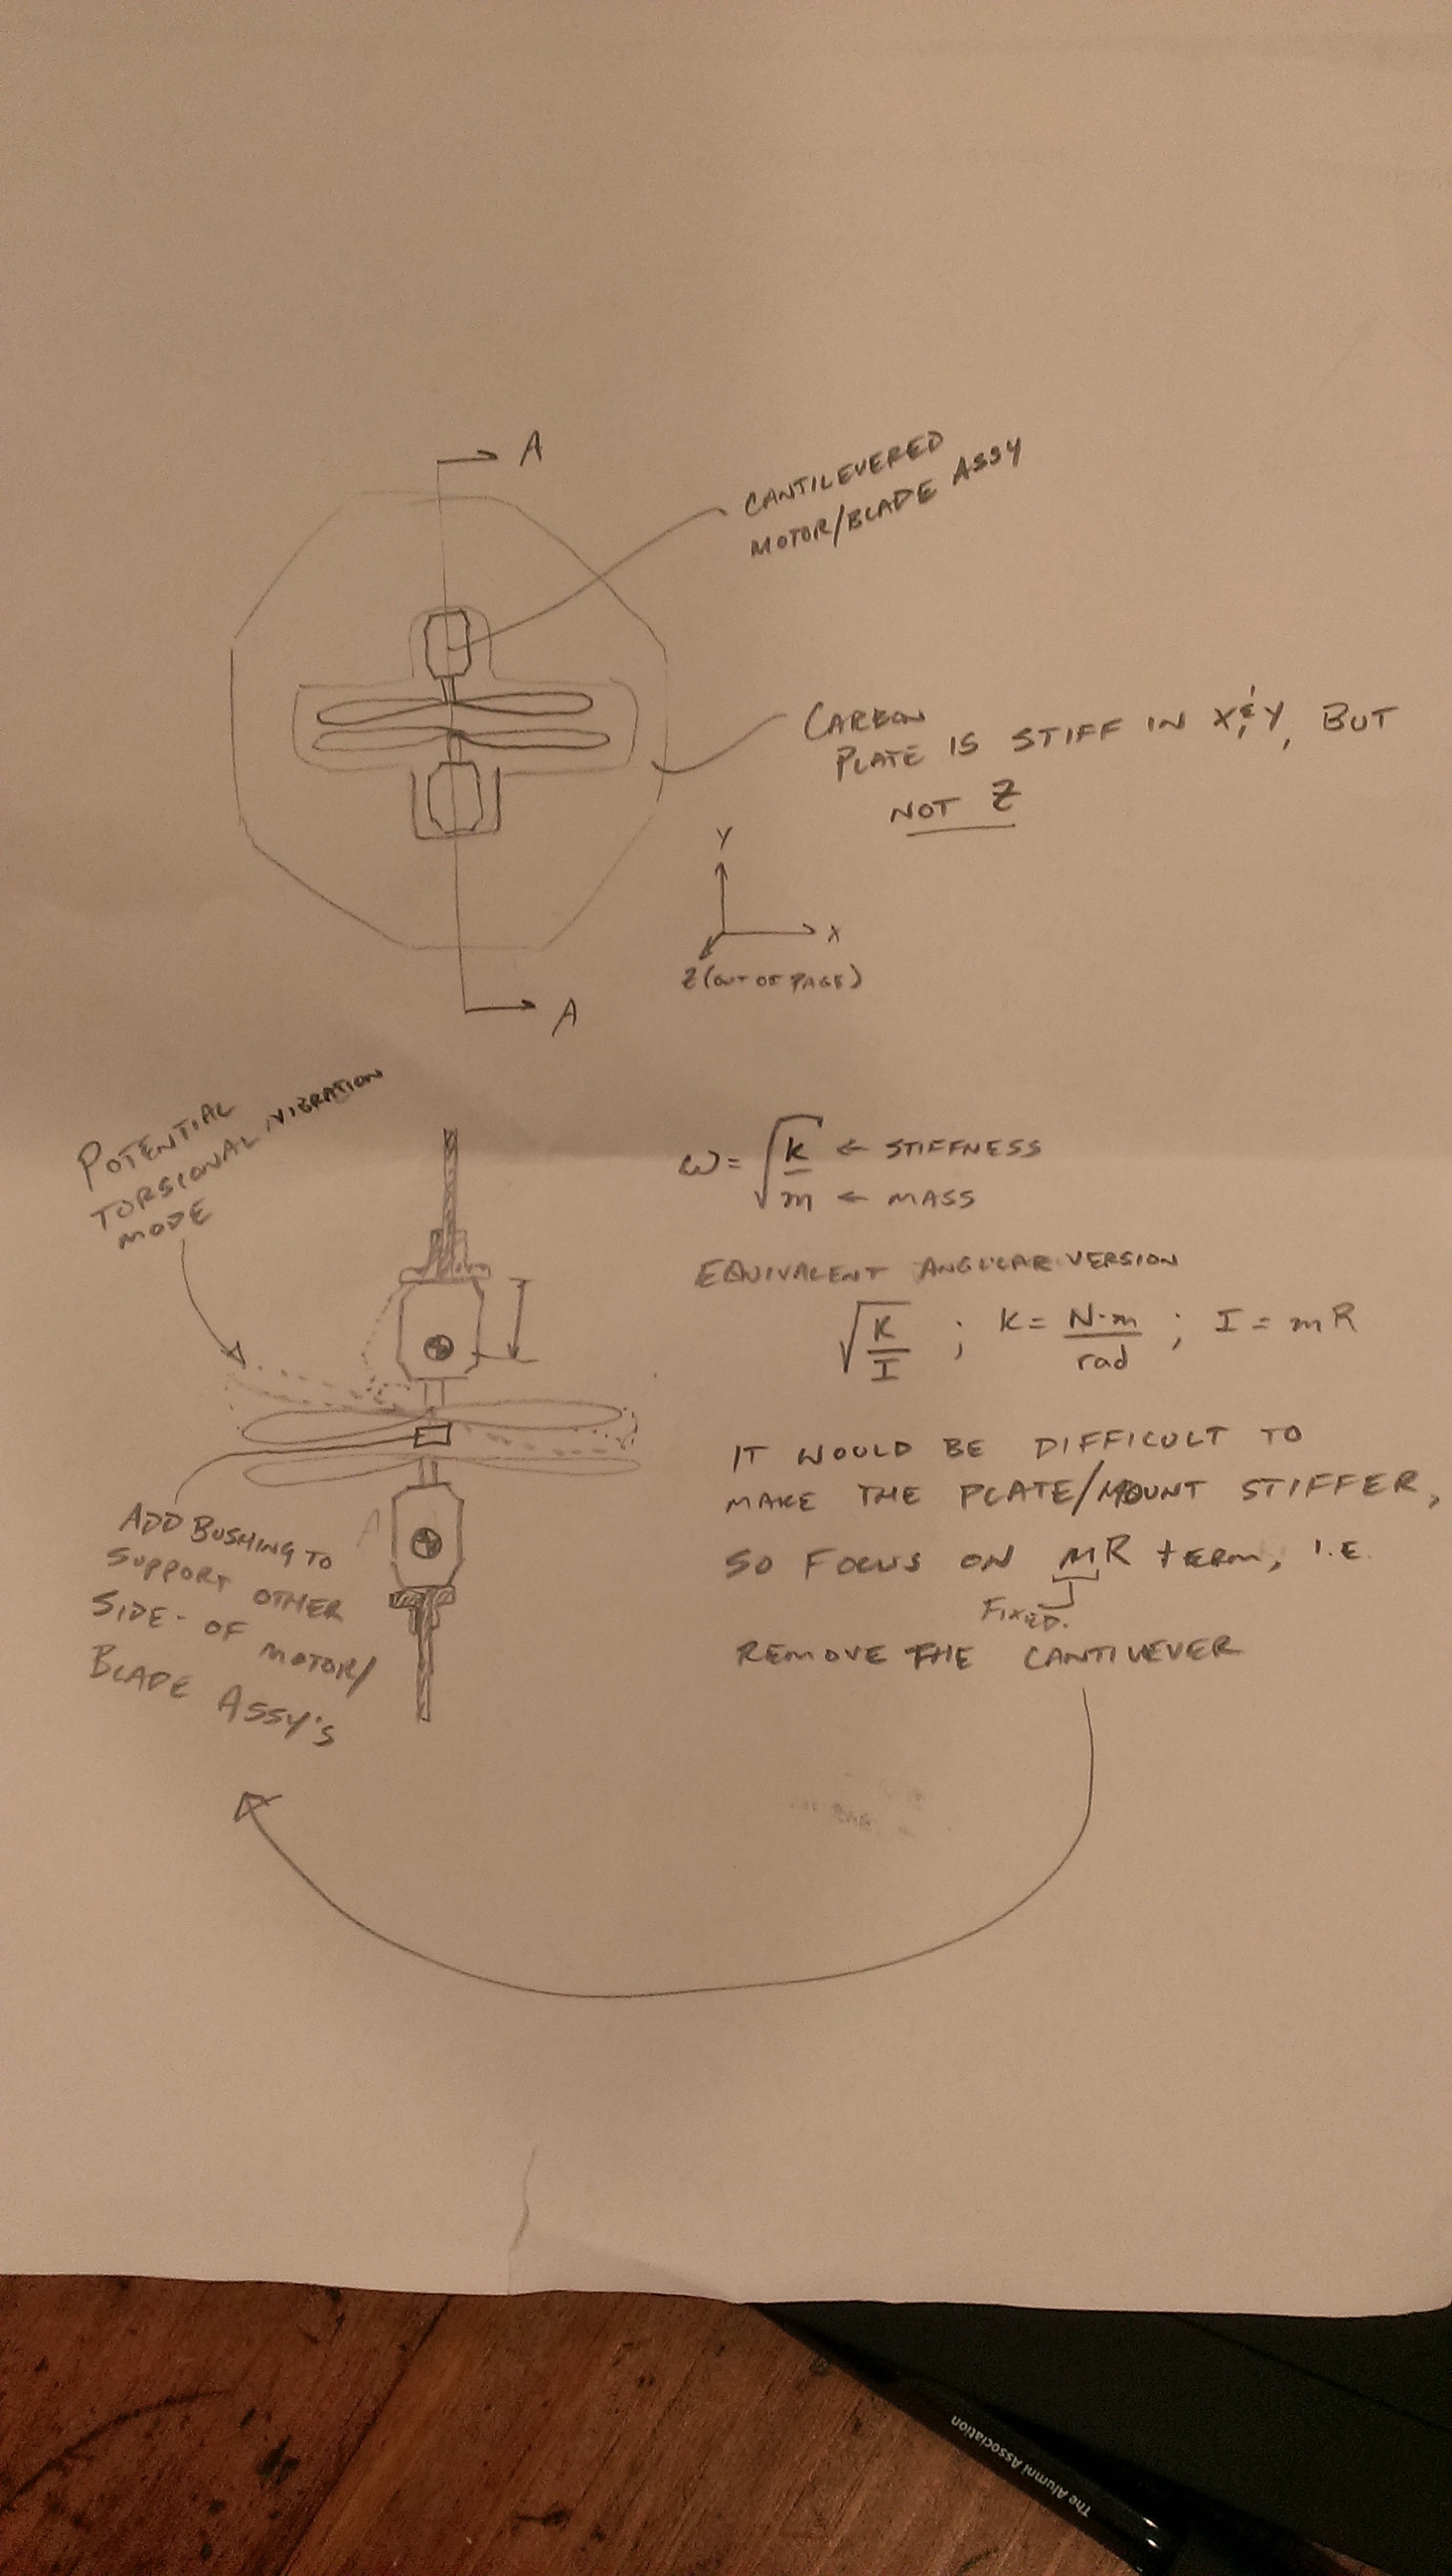 A
CANTILEVERED
MOTOR/BLADE ASSY
CARBON
PLATE IS STIFF IN X & Y, BUT
NOT Z
Y
X
Z (OUT OF PAGE)
A
POTENTIAL
TORSIONAL VIBRATION
MODE
ω = √k/m ← STIFFNESS
← MASS
EQUIVALENT ANGULAR VERSION
√K/I ; K = N·m/rad ; I = mR
IT WOULD BE DIFFICULT TO
MAKE THE PLATE/MOUNT STIFFER,
SO FOCUS ON MR TERM, I.E.
FIXED.
REMOVE THE CANTILEVER
ADD BUSHING TO
SUPPORT OTHER
SIDE OF MOTOR/
BLADE ASSY'S
The Alumni Association